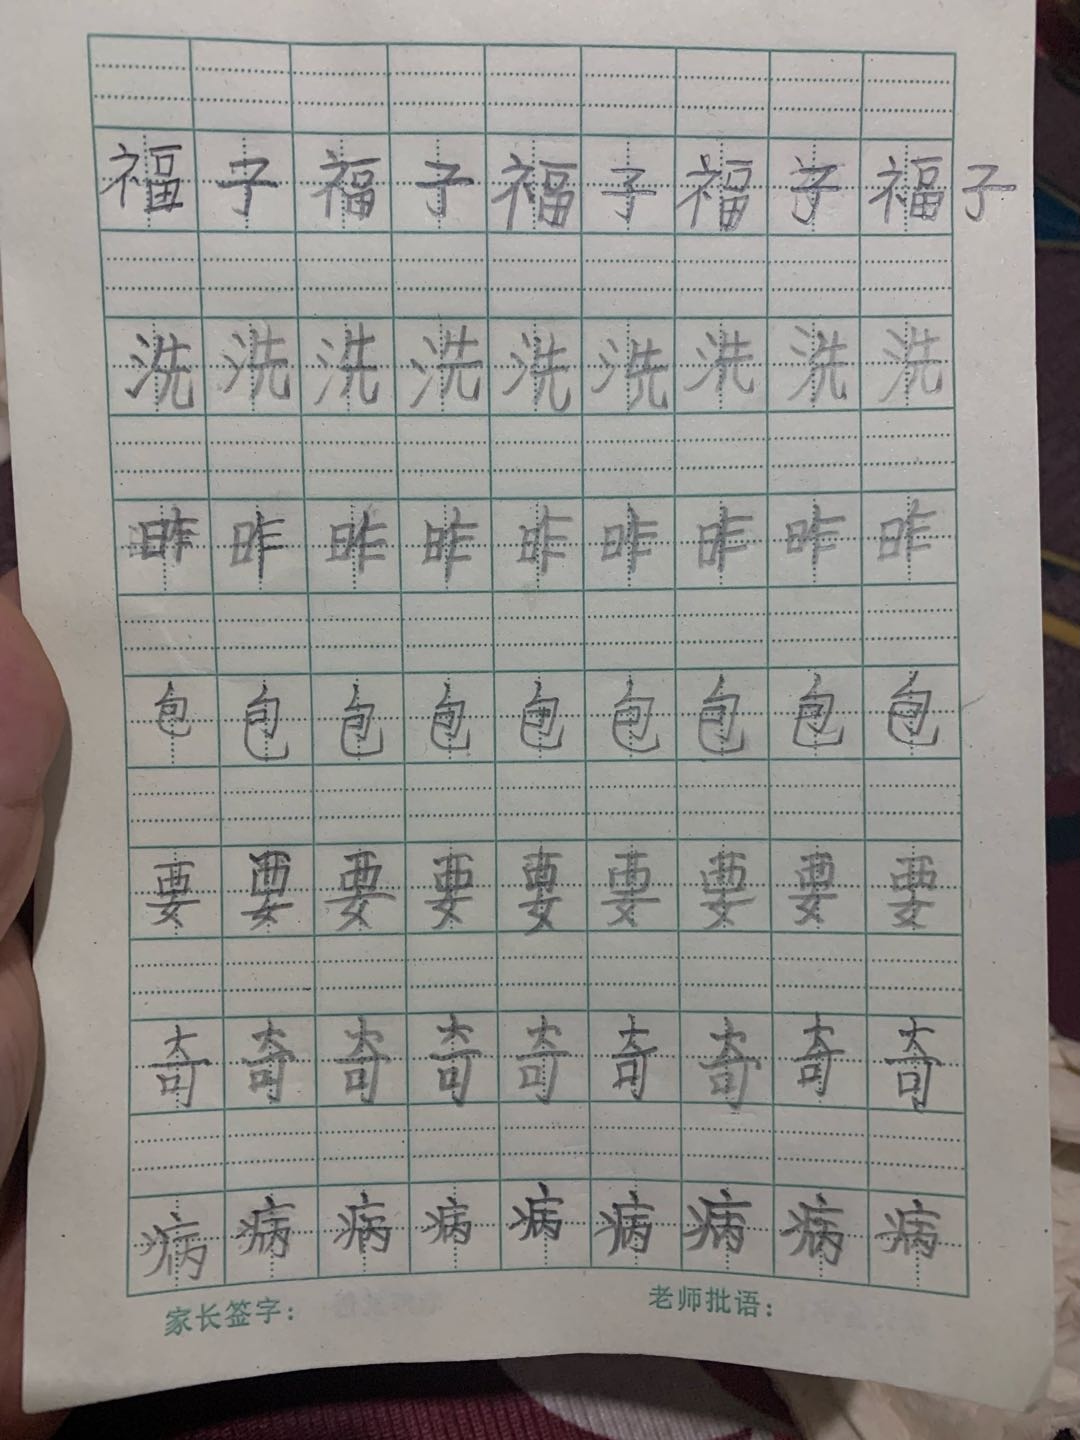 福子福子福子福子福子
洗洗洗洗洗洗洗洗洗
昨昨昨昨昨昨昨昨昨
包包包包包包包包包
要要要要要要要要要
奇奇奇奇奇奇奇奇奇
病病病病病病病病病
家长签字： 老师批语：